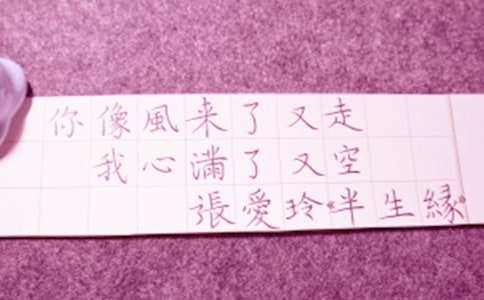 你像風来了又走
我心滿了又空
張愛玲《半生緣》